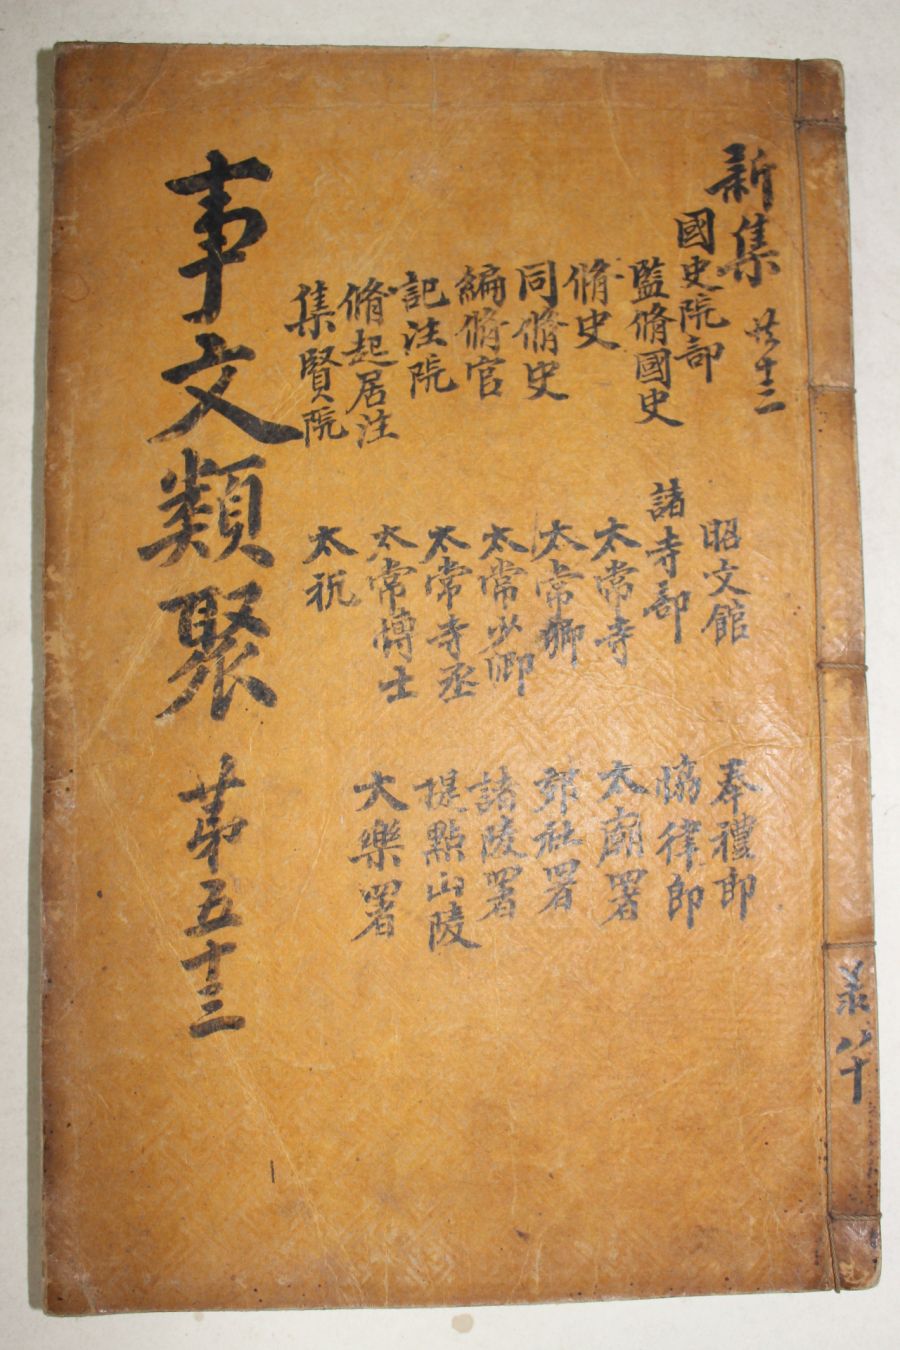 事文類聚 苐五十三
新集
國史院部
監脩國史
脩史
同脩史
編脩官
記注院
脩起居注
集賢院
昭文館
諸寺部
太常寺
太常卿
太常少卿
太常寺丞
太常博士
太祝
奉禮郎
協律郎
太廟署
郊社署
諸陵署
提點山陵
大樂署
八十